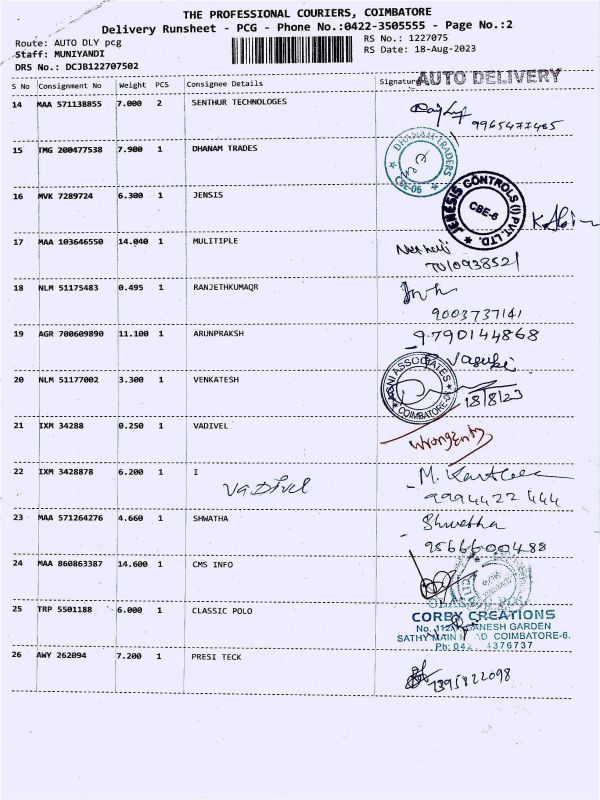 THE PROFESSIONAL COURIERS, COIMBATORE
Delivery Runsheet - PCG - Phone No.:0422-3505555 - Page No.:2
Route: AUTO DLY pcg RS No.: 1227075
Staff: MUNIYANDI RS Date: 18-Aug-2023
DRS No.: DCJB122707502
S No Consignment No Weight PCS Consignee Details Signature AUTO DELIVERY
14 MAA 571138855 7.000 2 SENTHUR TECHNOLOGES
15 TMG 200477538 7.900 1 DHANAM TRADES
DHANAM TRADERS
CBE-06
16 MVK 7289724 6.300 1 JENSIS
JENESIS CONTROLS (I) PVT. LTD.
CBE-6
17 MAA 103646550 14.040 1 MULITIPLE
7010938521
18 NLM 51175483 0.495 1 RANJETHKUMAQR
9003737141
19 AGR 700609890 11.100 1 ARUNPRAKSH 9790144868
Vasuki
20 NLM 51177002 3.300 1 VENKATESH
AGNI ASSOCIATES
COIMBATORE
18/8/23
21 IXM 34288 0.250 1 VADIVEL
Wrong Entry
22 IXM 3428878 6.200 1 I
Vadivel
9994422444
23 MAA 571264276 4.660 1 SHWATHA Shwetha
9566600488
24 MAA 860863387 14.600 1 CMS INFO
25 TRP 5501188 6.000 1 CLASSIC POLO
CORBY CREATIONS
GANESH GARDEN
SATHY MAIN ROAD COIMBATORE-6.
26 AWY 262094 7.200 1 PRESI TECK
7395822098